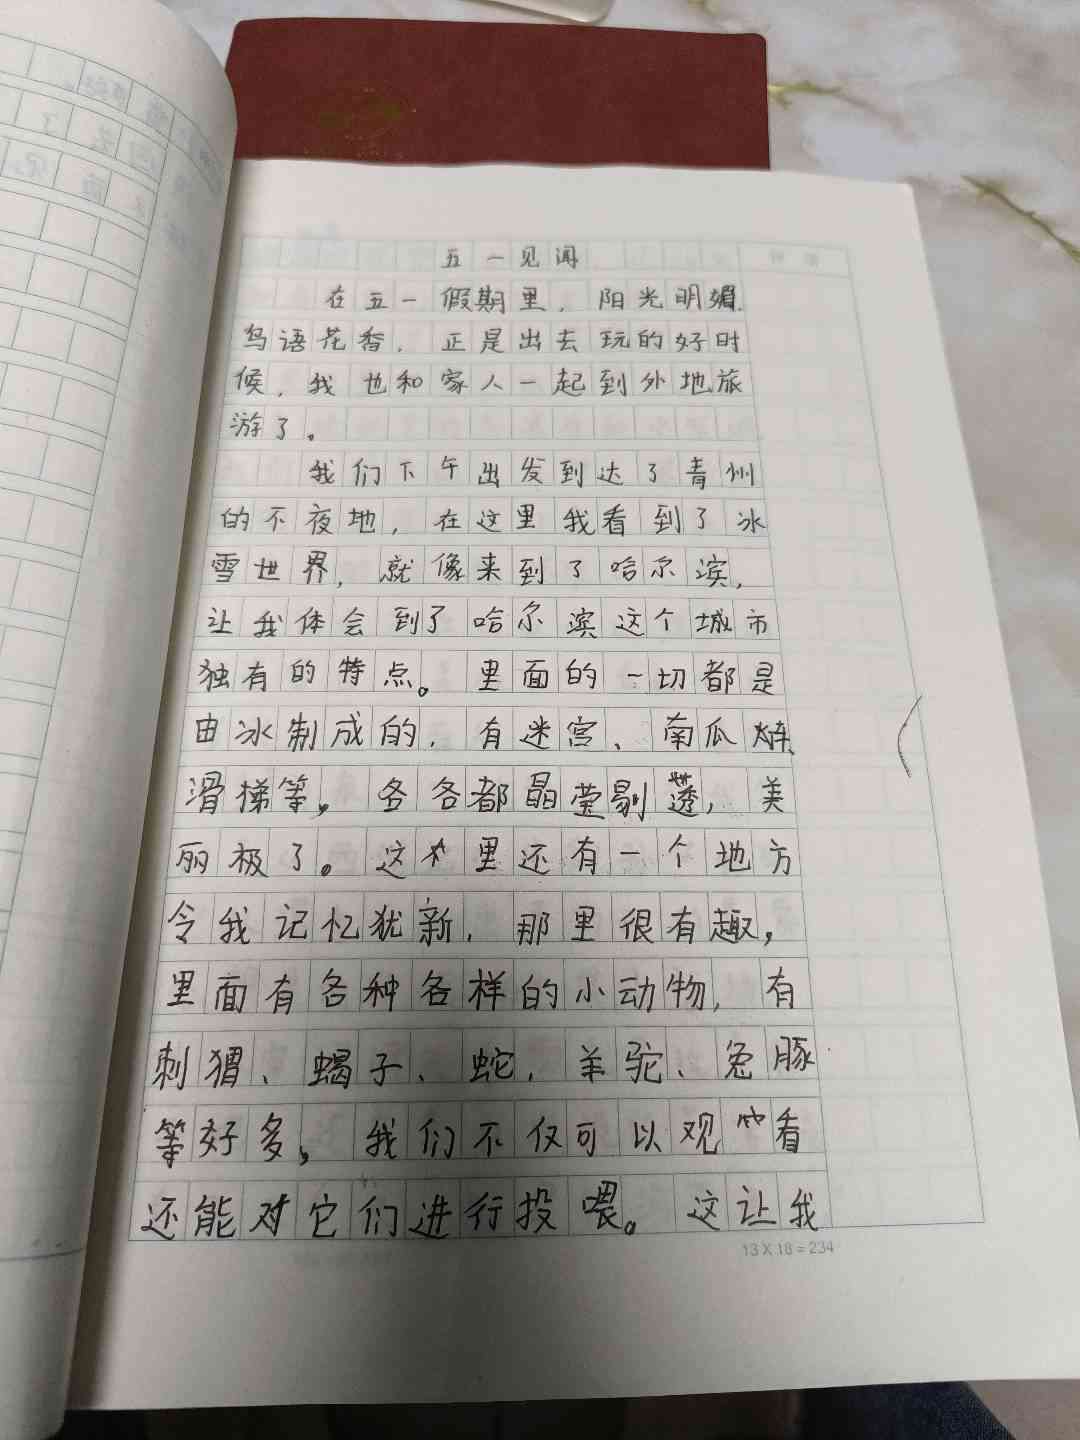 五一见闻
在五一假期里，阳光明媚，
鸟语花香，正是出去玩的好时
候，我也和家人一起到外地旅
游了。
我们下午出发到达了青州
的不夜地，在这里我看到了冰
雪世界，就像来到了哈尔滨，
让我体会到了哈尔滨这个城市
独有的特点。里面的一切都是
由冰制成的，有迷宫、南瓜
滑梯等，各各都晶莹剔透，美
丽极了。这里还有一个地方
令我记忆犹新，那里很有趣，
里面有各种各样的小动物，有
刺猬、蝎子、蛇，羊驼、兔豚
等好多，我们不仅可以观看
还能对它们进行投喂。这让我
13 X 18 = 234